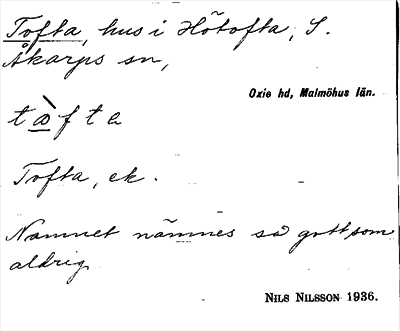 Tofta, hus i Hötofta, S.
Åkarps sn,
Oxie hd, Malmöhus län.
tòfta
Tofta, ek.
Namnet nämnes så gott som
aldrig
NILS NILSSON 1936.